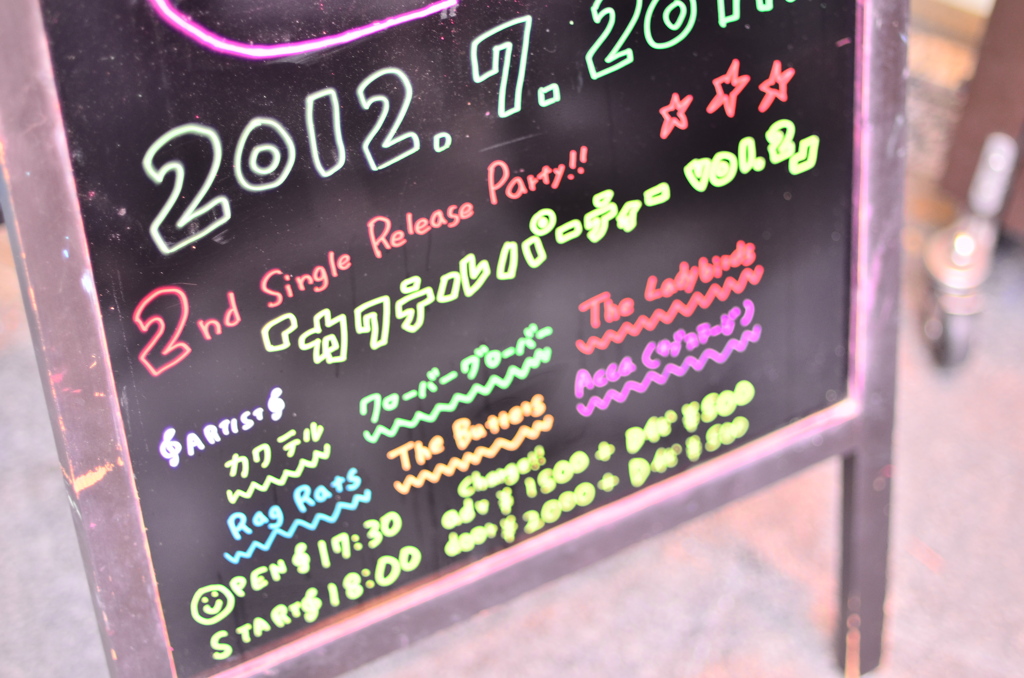 2012. 7. 20
2nd Single Release Party!!
「カクテルパーティー vol.2」
ARTIST
カクテル
クローバーグローバー
The Ladybirds
Rag Rats
The Buttons
OPEN 17:30
START 18:00
Charge!!
adv ¥1500 + D代¥500
door ¥2000 + D代¥500